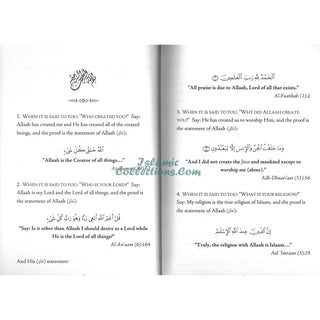 1. WHEN IT IS SAID TO YOU: "WHO CREATED YOU?" Say:
Allaah has created me and He has created all of the created
beings, and the proof is the statement of Allaah (ﷻ):
ٱللَّهُ خَٰلِقُ كُلِّ شَىْءٍ
"Allaah is the Creator of all things..."
2. WHEN IT IS SAID TO YOU: "WHO IS YOUR LORD?" Say:
Allaah is my Lord and the Lord of all things, and the proof is
the statement of Allaah (ﷻ):
قُلْ أَغَيْرَ ٱللَّهِ أَبْغِى رَبًّا وَهُوَ رَبُّ كُلِّ شَىْءٍ
"Say: Is it other than Allaah I should desire as a Lord while
He is the Lord of all things?"
Al-An'aam (6):164
And His (ﷻ) statement:
ٱلْحَمْدُ لِلَّهِ رَبِّ ٱلْعَٰلَمِينَ
"All praise is due to Allaah, Lord of all that exists."
Al-Faatihah (1):2
3. WHEN IT IS SAID TO YOU: "WHY DID ALLAAH CREATE
YOU?" Say: He has created us to worship Him, and the proof
is the statement of Allaah (ﷻ):
وَمَا خَلَقْتُ ٱلْجِنَّ وَٱلْإِنسَ إِلَّا لِيَعْبُدُونِ
"And I did not create the Jinn and mankind except to
worship me (alone)."
Adh-Dhaariyaat (51):56
4. WHEN IT IS SAID TO YOU: "WHAT IS YOUR RELIGION?"
Say: My religion is the true religion of Islaam, and the proof is
the statement of Allaah (ﷻ):
إِنَّ ٱلدِّينَ عِندَ ٱللَّهِ ٱلْإِسْلَٰمُ
"Truly, the religion with Allaah is Islaam...."
Aal 'Imraan (3):19
Islamic
Collections.Com